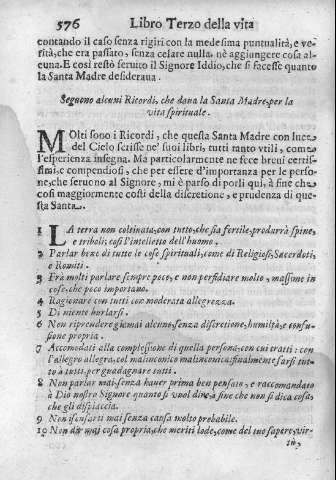 576 Libro Terzo della vita
contando il caso senza rigiri con la medesima puntualità, e ve-
rità, che era passato, senza cesare nulla, nè aggiungere cosa al-
cuna. E così restò seruito il Signore Iddio, che si facesse quanto
la Santa Madre desideraua.
Seguono alcuni Ricordi, che daua la Santa Madre, per la
vita spirituale.
MOlti sono i Ricordi, che questa Santa Madre con luce
del Cielo scrisse ne' suoi libri, tutti tanto vtili, come
l'esperienza insegna. Ma particolarmente ne fece breui certis-
simi, e compendiosi, che per essere d'importanza per le perso-
ne, che seruono al Signore, mi è parso di porli quì, à fine che
così maggiormente costi della discretione, e prudenza di que-
sta Santa.
1 LA terra non coltiuata, con tutto, che sia fertile, produrrà spine,
e triboli; così l'intelletto dell'huomo.
2 Parlar bene di tutte le cose spirituali, come di Religiosi, Sacerdoti,
e Romiti.
3 Frà molti parlare sempre poco, e non perfidiare molto, massime in
cose, che poco importano.
4 Ragionare con tutti con moderata allegrezza.
5 Di niente burlarsi.
6 Non riprendere giamai alcuno, senza discretione, humiltà, e confu-
sione propria.
7 Accommodati alla complessione di quella persona, con cui tratti: con
l'allegro allegra, col malinconico malinconica; finalmente farsi tut-
to à tutti, per guadagnare tutti.
8 Non parlar mai, senza hauer prima ben pensato, e raccomandato
à Dio nostro Signore quanto si vuol dire, à fine che non si dica cosa,
che gli dispiaccia.
9 Non iscusarti mai senza causa molto probabile.
10 Non dir mai cosa propria, che meriti lode, come del tuo sapere, vir-